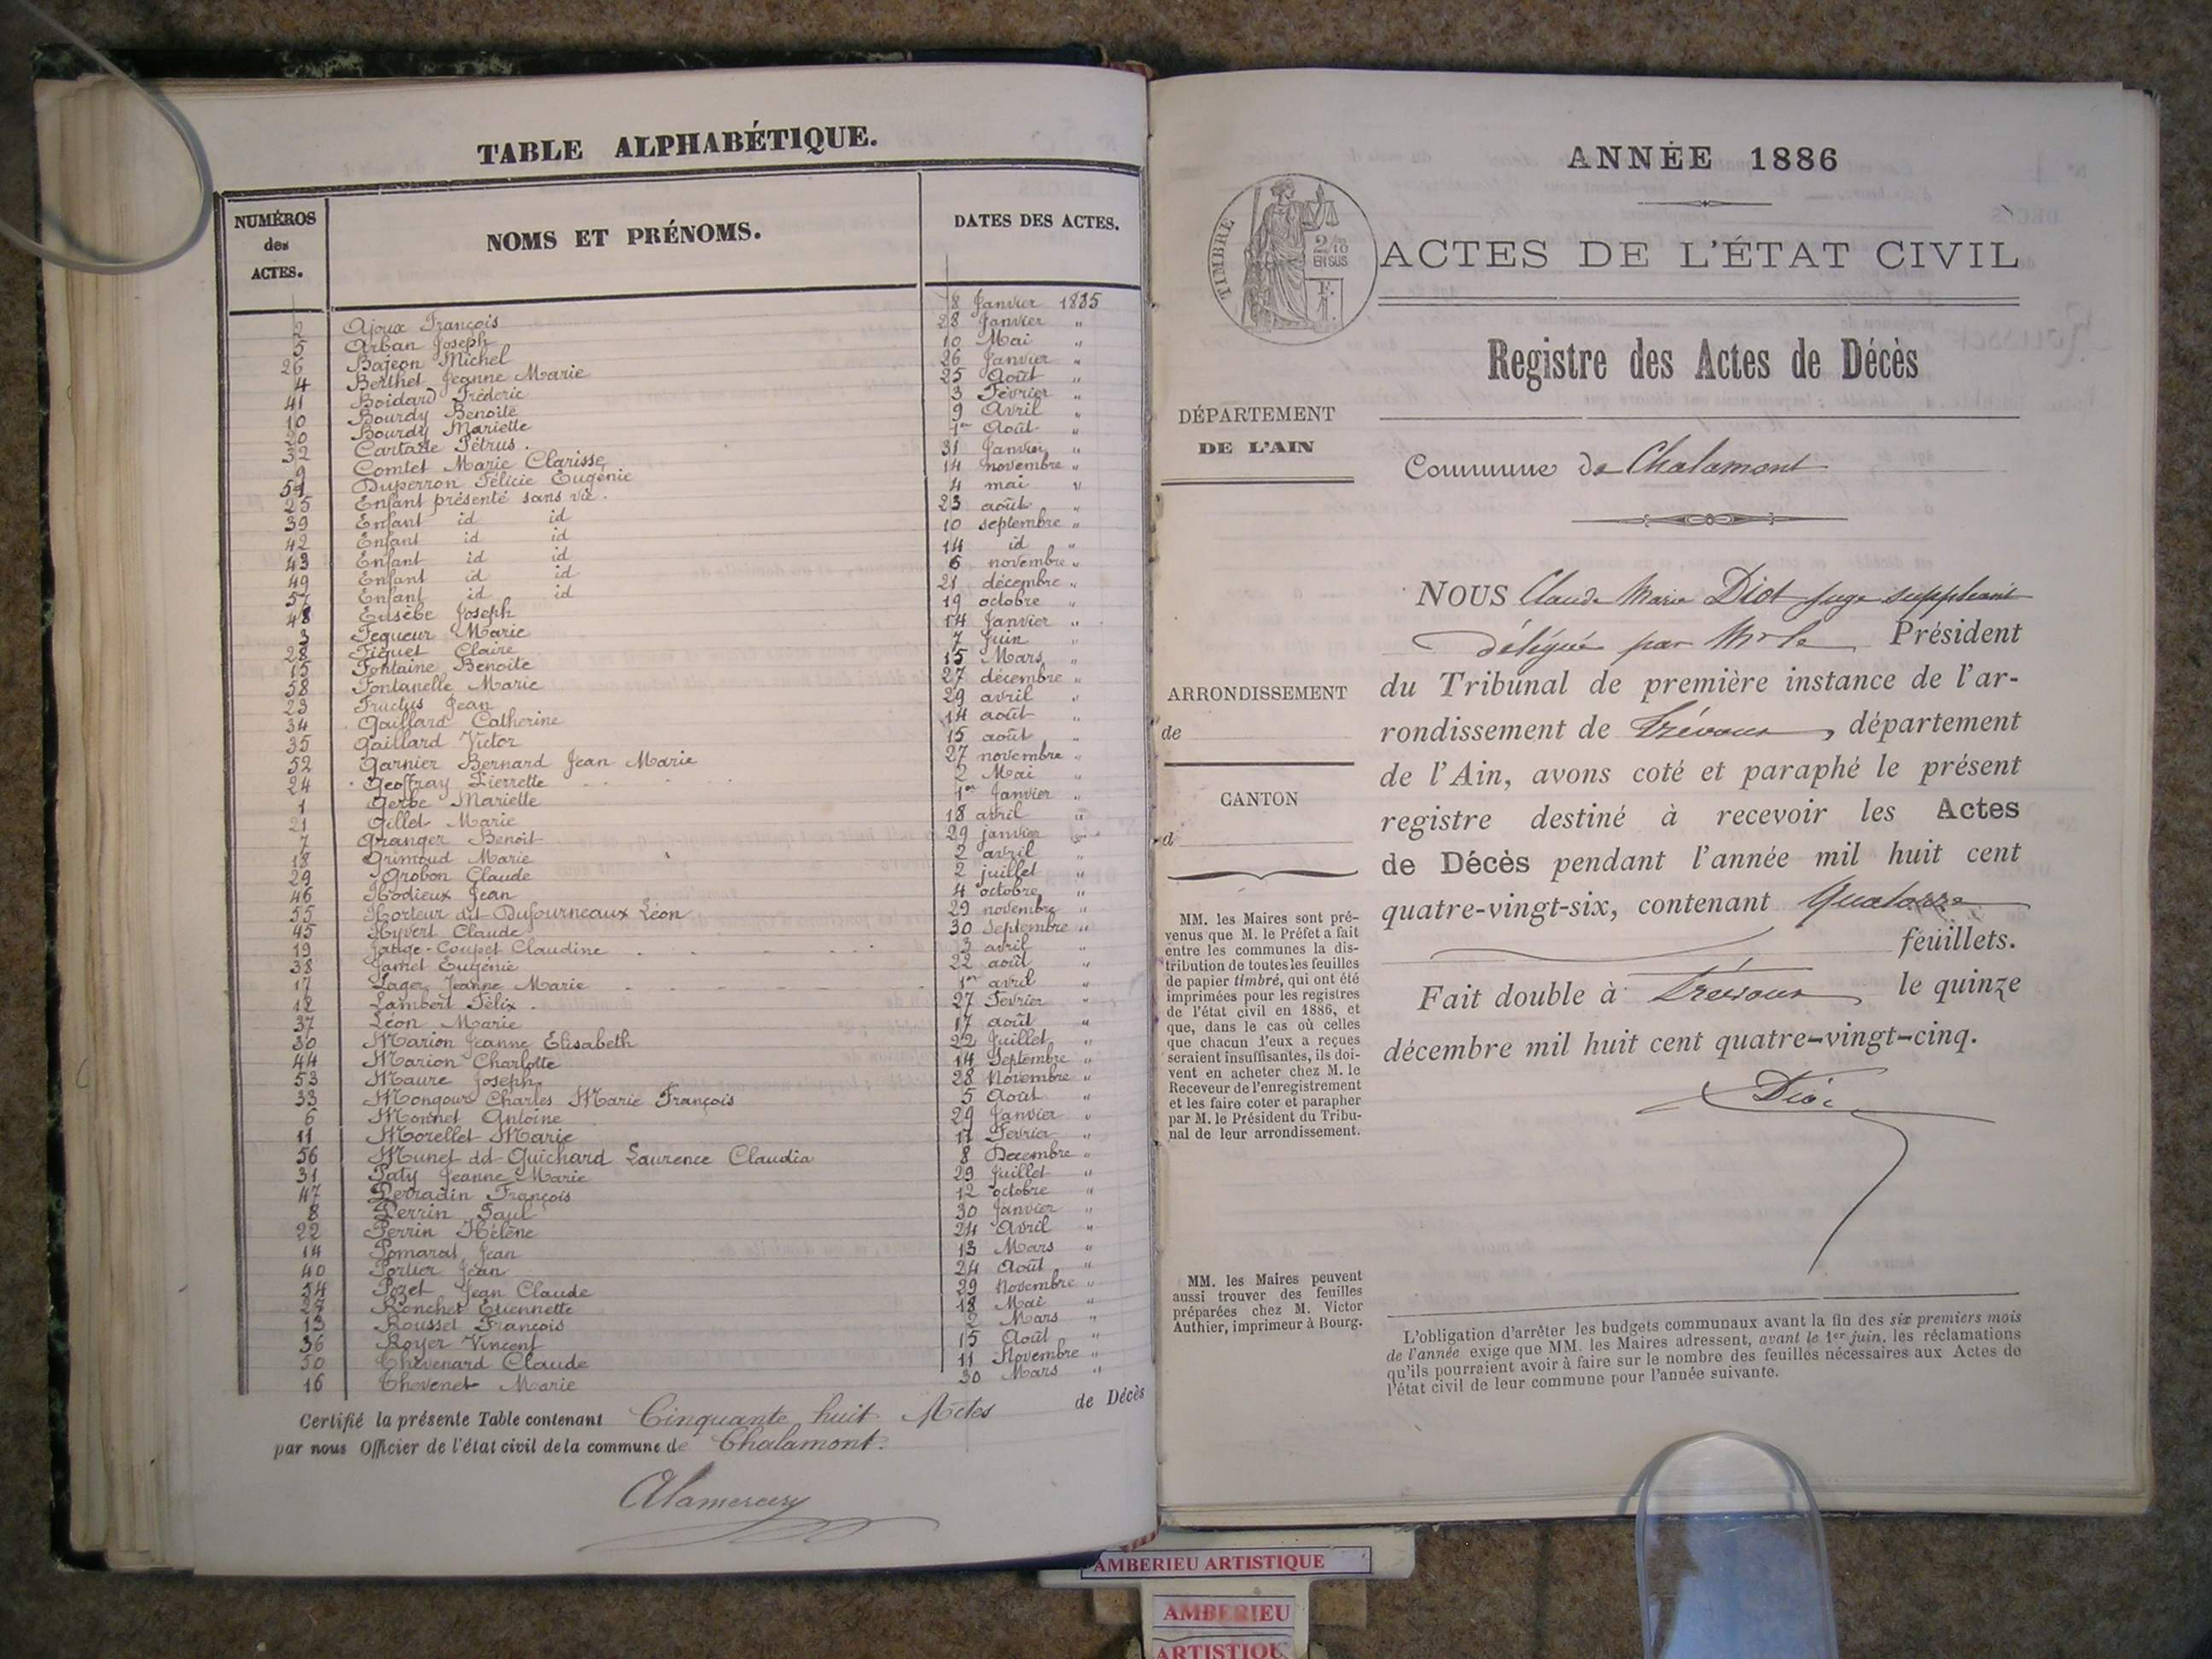 TABLE ALPHABÉTIQUE.
NUMÉROS des ACTES.
NOMS ET PRÉNOMS.
DATES DES ACTES.
2 Ajoux François 8 Janvier 1885
5 Arban Joseph 28 Janvier "
26 Bajeon Michel 10 Mai "
4 Berthet Jeanne Marie 26 Janvier "
41 Boidard Fréderic 25 Août "
10 Bourdy Benoite 3 Février "
20 Bourdy Mariette 9 Avril "
32 Cartade Pétrus. 1er Août "
9 Comtet Marie Clarisse 31 Janvier "
51 Duperron Félicie Eugénie 14 novembre "
25 Enfant présenté sans vie. 4 mai "
39 Enfant id id 23 août "
42 Enfant id id 10 septembre "
43 Enfant id id 14 id "
49 Enfant id id 6 novembre "
57 Enfant id id 21 décembre "
48 Eusèbe Joseph 19 octobre "
3 Fequeur Marie 14 Janvier "
28 Fiquet Claire 7 Juin "
15 Fontaine Benoite 15 Mars "
58 Fontanelle Marie 27 décembre "
23 Fructus Jean 29 avril "
34 Gaillard Catherine 14 août "
35 Gaillard Victor 15 août "
52 Garnier Bernard Jean Marie 27 novembre "
24 Geoffray Pierrette 2 Mai "
1 Gerbe Mariette 1er Janvier "
21 Gillet Marie 18 avril "
7 Granger Benoit 29 janvier "
18 Grimoud Marie 2 avril "
29 Grobon Claude 2 juillet "
46 Hodieux Jean 4 octobre "
55 Horteur dit Dufourneaux Léon 29 novembre "
45 Hyvert Claude 30 Septembre "
19 Jauge-Coupet Claudine 3 avril "
38 Jamet Eugénie 22 août "
17 Lager Jeanne Marie 1er avril "
12 Lambert Félix 27 Fevrier "
37 Léon Marie 17 août "
30 Marion Jeanne Elisabeth 22 Juillet "
44 Marion Charlotte 14 Septembre "
53 Maure Joseph 28 Novembre "
33 Mongour Charles Marie François 5 Août "
6 Monnet Antoine 29 Janvier "
11 Morellet Marie 17 Fevrier "
56 Munet dd Guichard Laurence Claudia 8 Decembre "
31 Paty Jeanne Marie 29 Juillet "
47 Perradin François 12 octobre "
8 Perrin Paul 30 Janvier "
22 Perrin Hélène 24 Avril "
14 Pomarat Jean 13 Mars "
40 Portier Jean 24 Août "
54 Pozet Jean Claude 29 Novembre "
27 Ronchet Etiennette 18 Mai "
13 Rousset François 2 Mars "
36 Royer Vincent 15 Août "
50 Thévenard Claude 11 Novembre "
16 Thevenet Marie 30 Mars "
Certifié la présente Table contenant Cinquante huit Actes de Décès
par nous Officier de l'état civil de la commune de Chalamont.
Alamercery
ANNÉE 1886
TIMBRE
2/10
EN SUS
ACTES DE L'ÉTAT CIVIL
Registre des Actes de Décès
DÉPARTEMENT
DE L'AIN
Commune de Chalamont
NOUS Claude Marie Diot juge suppléant
délégué par Mr le Président
du Tribunal de première instance de l'ar-
rondissement de Trévoux, département
de l'Ain, avons coté et paraphé le présent
registre destiné à recevoir les Actes
de Décès pendant l'année mil huit cent
quatre-vingt-six, contenant Quatorze
feuillets.
Fait double à Trévoux le quinze
décembre mil huit cent quatre-vingt-cinq.
Diot
ARRONDISSEMENT
de
CANTON
d
MM. les Maires sont pré-
venus que M. le Préfet a fait
entre les communes la dis-
tribution de toutes les feuilles
de papier timbré, qui ont été
imprimées pour les registres
de l'état civil en 1886, et
que, dans le cas où celles
que chacun d'eux a reçues
seraient insuffisantes, ils doi-
vent en acheter chez M. le
Receveur de l'enregistrement
et les faire coter et parapher
par M. le Président du Tribu-
nal de leur arrondissement.
MM. les Maires peuvent
aussi trouver des feuilles
préparées chez M. Victor
Authier, imprimeur à Bourg.
L'obligation d'arrêter les budgets communaux avant la fin des six premiers mois
de l'année exige que MM. les Maires adressent, avant le 1er juin, les réclamations
qu'ils pourraient avoir à faire sur le nombre des feuilles nécessaires aux Actes de
l'état civil de leur commune pour l'année suivante.
AMBERIEU ARTISTIQUE
AMBERIEU
ARTISTIQU